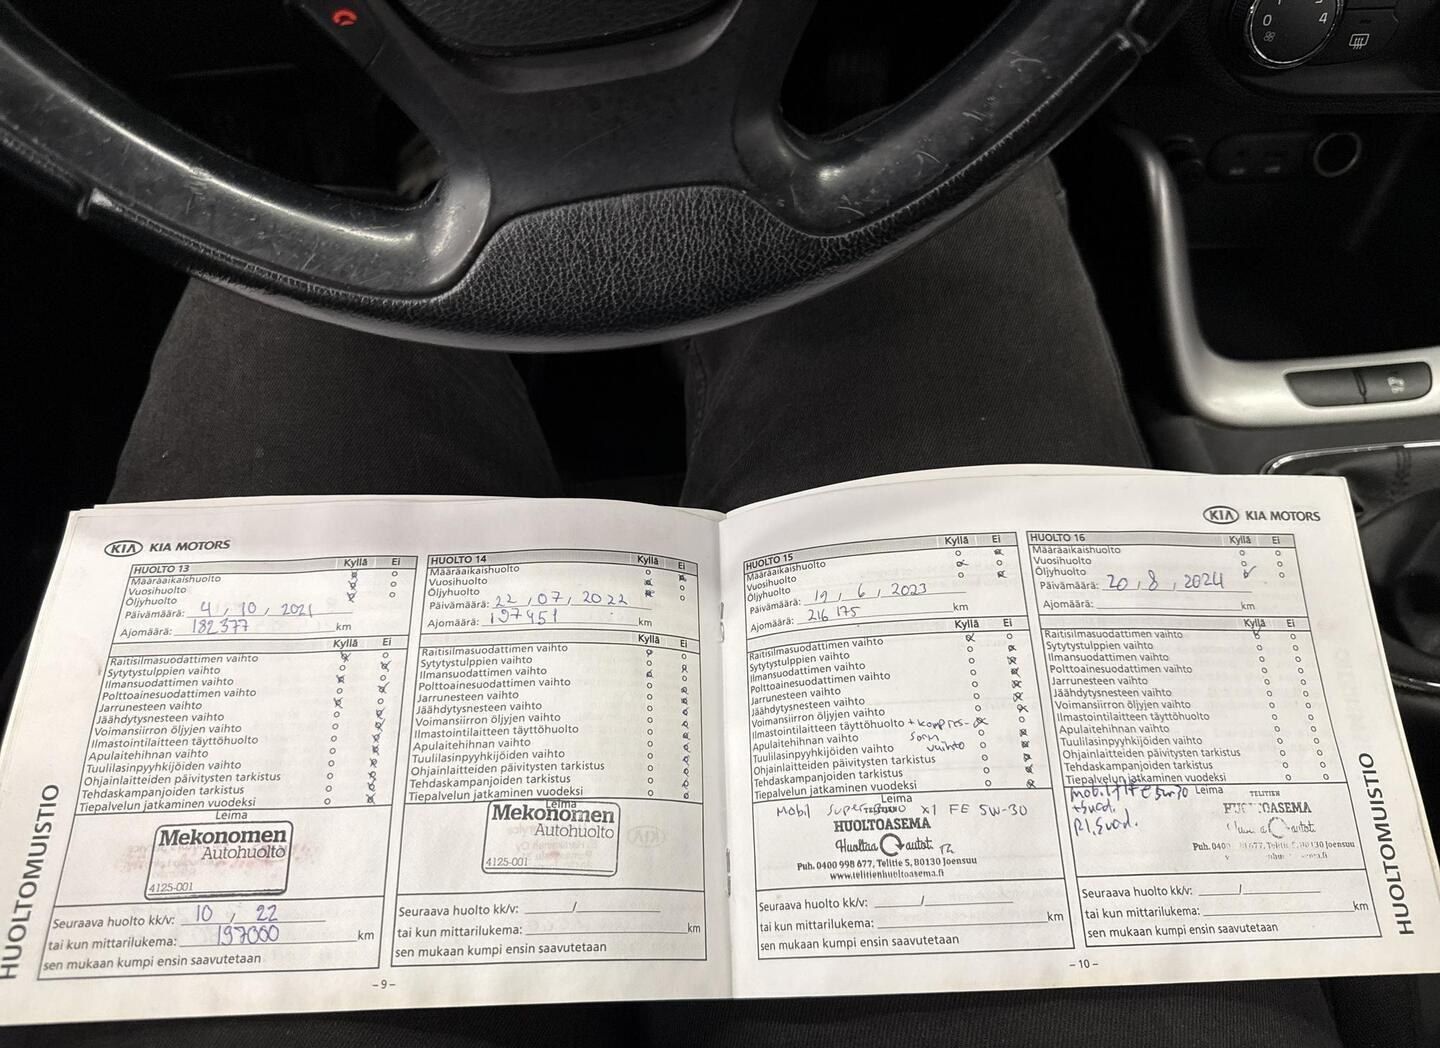 0
4
KIA KIA MOTORS
HUOLTO 13 Kyllä Ei
Määräaikaishuolto
Vuosihuolto
Öljyhuolto
Päivämäärä: 4, 10, 2021
Ajomäärä: 182377 km
Kyllä Ei
Raitisilmasuodattimen vaihto
Sytytystulppien vaihto
Ilmansuodattimen vaihto
Polttoainesuodattimen vaihto
Jarrunesteen vaihto
Jäähdytysnesteen vaihto
Voimansiirron öljyjen vaihto
Ilmastointilaitteen täyttöhuolto
Apulaitehihnan vaihto
Tuulilasinpyyhkijöiden vaihto
Ohjainlaitteiden päivitysten tarkistus
Tehdaskampanjoiden tarkistus
Tiepalvelun jatkaminen vuodeksi
Leima
Mekonomen
Autohuolto
4125-001
Seuraava huolto kk/v: 10, 22
tai kun mittarilukema: 197000 km
sen mukaan kumpi ensin saavutetaan
HUOLTOMUISTIO
HUOLTO 14 Kyllä Ei
Määräaikaishuolto
Vuosihuolto
Öljyhuolto
Päivämäärä: 22, 07, 2022
Ajomäärä: 197451 km
Kyllä Ei
Raitisilmasuodattimen vaihto
Sytytystulppien vaihto
Ilmansuodattimen vaihto
Polttoainesuodattimen vaihto
Jarrunesteen vaihto
Jäähdytysnesteen vaihto
Voimansiirron öljyjen vaihto
Ilmastointilaitteen täyttöhuolto
Apulaitehihnan vaihto
Tuulilasinpyyhkijöiden vaihto
Ohjainlaitteiden päivitysten tarkistus
Tehdaskampanjoiden tarkistus
Tiepalvelun jatkaminen vuodeksi
Leima
Mekonomen
Autohuolto
4125-001
Seuraava huolto kk/v: /
tai kun mittarilukema: km
sen mukaan kumpi ensin saavutetaan
- 9 -
KIA KIA MOTORS
HUOLTO 15 Kyllä Ei
Määräaikaishuolto
Vuosihuolto
Öljyhuolto
Päivämäärä: 19, 6, 2023
Ajomäärä: 216 175 km
Kyllä Ei
Raitisilmasuodattimen vaihto
Sytytystulppien vaihto
Ilmansuodattimen vaihto
Polttoainesuodattimen vaihto
Jarrunesteen vaihto
Jäähdytysnesteen vaihto
Voimansiirron öljyjen vaihto
Ilmastointilaitteen täyttöhuolto + kompres-
Apulaitehihnan vaihto sorin
Tuulilasinpyyhkijöiden vaihto vaihto
Ohjainlaitteiden päivitysten tarkistus
Tehdaskampanjoiden tarkistus
Tiepalvelun jatkaminen vuodeksi
Leima
Mobil Super 3000 x1 FE 5W-30
HUOLTOASEMA
Huoltaa autot.
Puh. 0400 998 677, Telitie 5, 80130 Joensuu
www.telitienhuoltoasema.fi
Seuraava huolto kk/v: /
tai kun mittarilukema: km
sen mukaan kumpi ensin saavutetaan
HUOLTO 16 Kyllä Ei
Määräaikaishuolto
Vuosihuolto
Öljyhuolto
Päivämäärä: 20, 8, 2024
Ajomäärä: km
Kyllä Ei
Raitisilmasuodattimen vaihto
Sytytystulppien vaihto
Ilmansuodattimen vaihto
Polttoainesuodattimen vaihto
Jarrunesteen vaihto
Jäähdytysnesteen vaihto
Voimansiirron öljyjen vaihto
Ilmastointilaitteen täyttöhuolto
Apulaitehihnan vaihto
Tuulilasinpyyhkijöiden vaihto
Ohjainlaitteiden päivitysten tarkistus
Tehdaskampanjoiden tarkistus
Tiepalvelun jatkaminen vuodeksi
Leima
mobil 5w30
+suod.
RI.Suod.
TELITIEN
HUOLTOASEMA
autot.
80130 Joensuu
Seuraava huolto kk/v: /
tai kun mittarilukema: km
sen mukaan kumpi ensin saavutetaan
- 10 -
HUOLTOMUISTIO